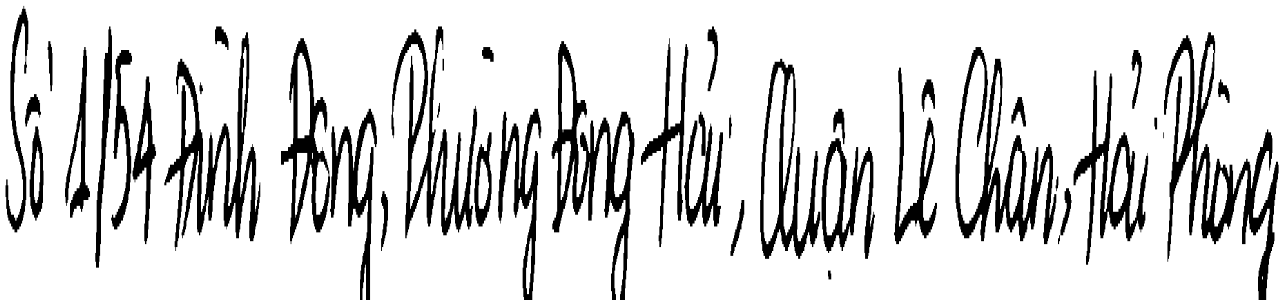 Số 1/54 Đình Đông, Phường Đông Hải, Quận Lê Chân, Hải Phòng